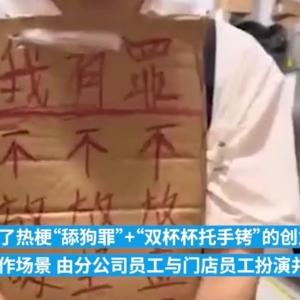 我有罪
不不不
了热梗“舔狗罪”+“双杯杯托手铐”的创
作场景 由分公司员工与门店员工扮演并